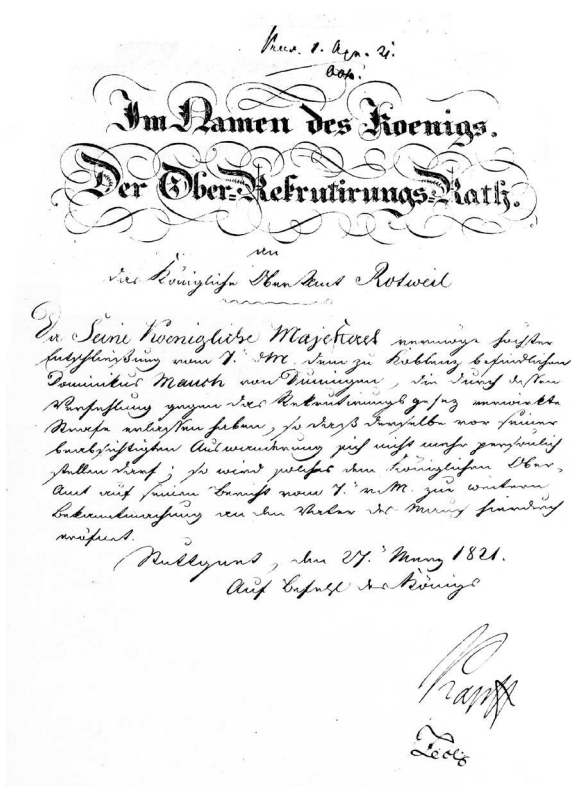 Präs. 1. Apr. 21.
Im Namen des Koenigs.
Der Ober-Rekrutirungs-Rath.
an
das Königliche Oberamt Rotweil
Da Seine Koenigliche Majestaet vermöge höchster
Entschließung vom d. M. dem zu Koblenz befindlichen
Dominikus Mauch von Dunningen, die durch dessen
Verfehlung gegen das Rekrutirungsgesez verwirkte
Strafe erlassen haben, so daß derselbe vor seiner
beabsichtigten Auswanderung sich nicht mehr persönlich
stellen darf; so wird solches dem Königlichen Ober-
Amt auf seinen Bericht vom v. M. zur weitern
Bekanntmachung an den Vater des hierdurch
eröfnet.
Stuttgart, den 27. März 1821.
Auf Befehl des Königs